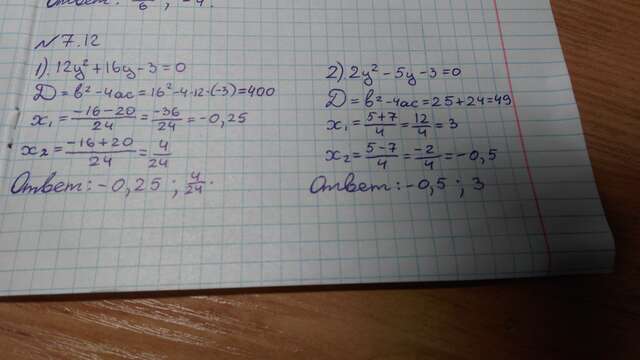 Ответ: /6 ; -4.
№ 7.12
1). 12y² + 16y - 3 = 0
D = b² - 4ac = 16² - 4·12·(-3) = 400
x₁ = (-16-20)/24 = -36/24 = -0,25
x₂ = (-16+20)/24 = 4/24
Ответ: -0,25 ; 4/24.
2). 2y² - 5y - 3 = 0
D = b² - 4ac = 25 + 24 = 49
x₁ = (5+7)/4 = 12/4 = 3
x₂ = (5-7)/4 = -2/4 = -0,5
Ответ: -0,5 ; 3